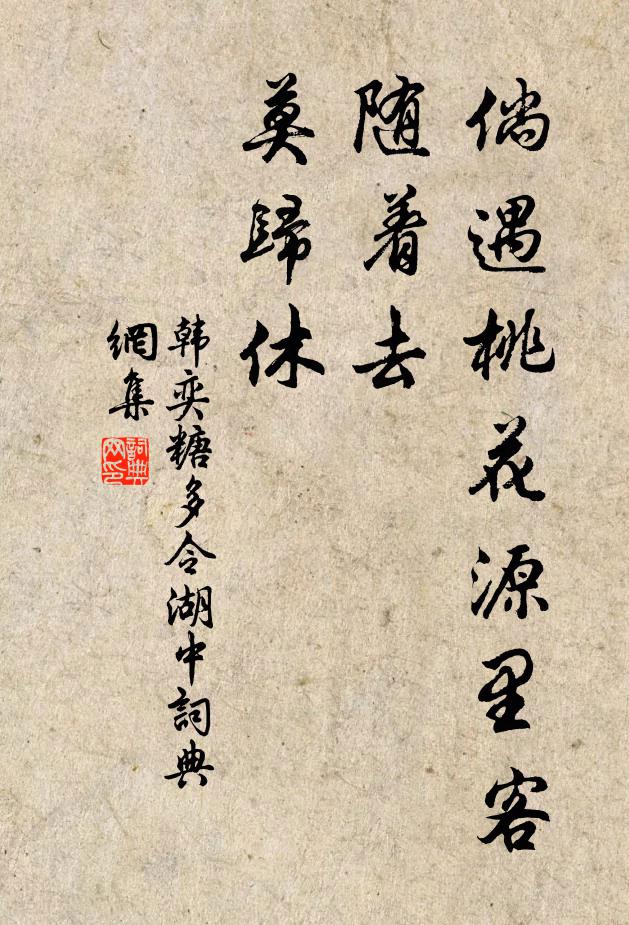 倘遇桃花源里客
随着去
莫歸休
韩奕糖多令湖中詞典
網集
詞典
网印